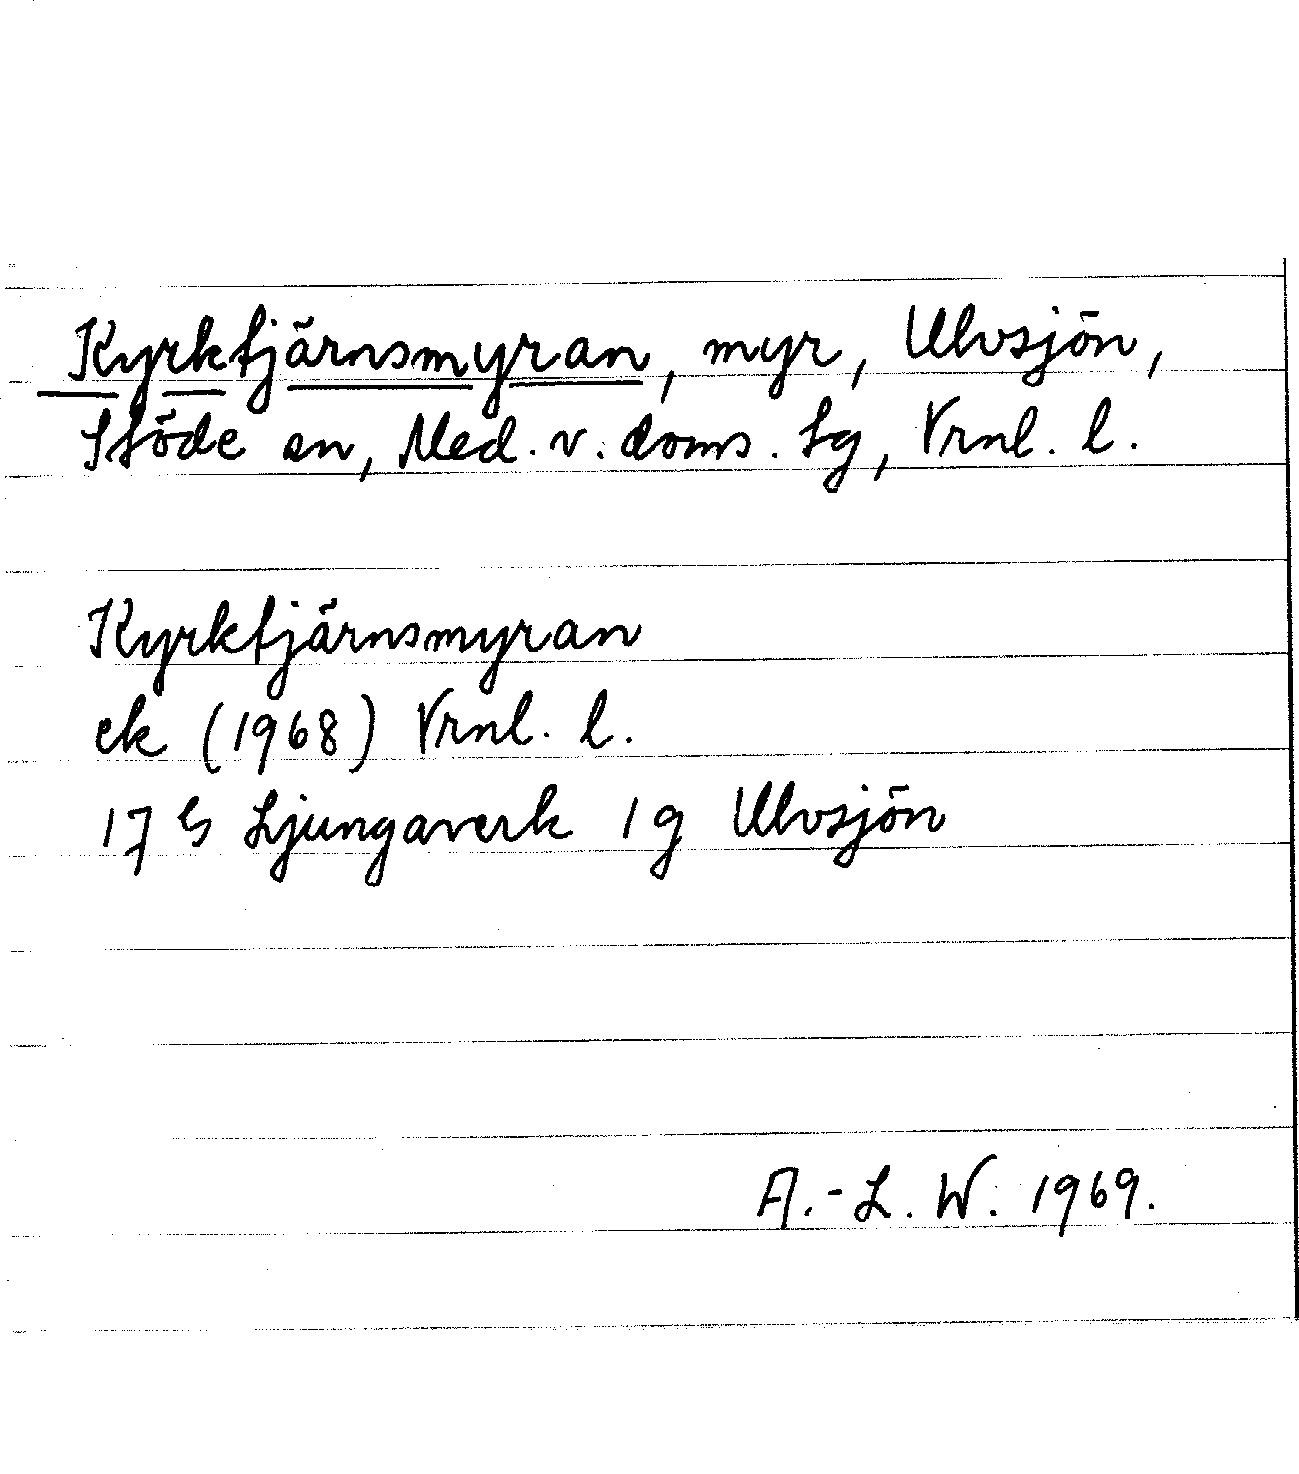 Kyrktjärnsmyran, myr, Ulvsjön,
Stöde sn, Med. v. doms. Lg, Vrnl. l.
Kyrktjärnsmyran
ek (1968) Vrnl. l.
17 G Ljungaverk 1 g Ulvsjön
A.-L. W. 1969.